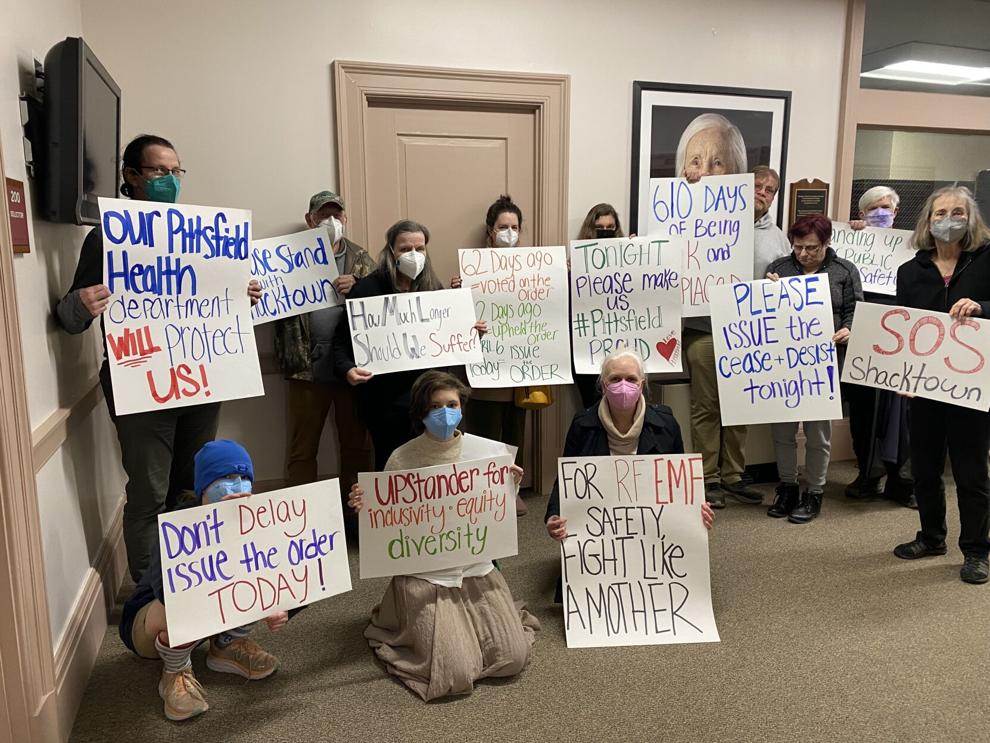 200
OUR Pittsfield
Health
department
WILL protect
US!
Stand
with
How Much Longer
Should We Suffer!
62 Days ago
=voted on the
order
Days ago
=upheld the
order
issue
Today= the
ORDER
TONIGHT
Please make
us
#Pittsfield
PROUD
610 DAYS
OF Being
and
PLEASE
ISSUE the
cease+Desist
tonight!
PUBLIC
Safety
SOS
Shacktown
Don't Delay
issue the order
TODAY!
UPStander for
inclusivity·equity
diversity
FOR RF EMF
SAFETY,
FIGHT LIKE
A MOTHER